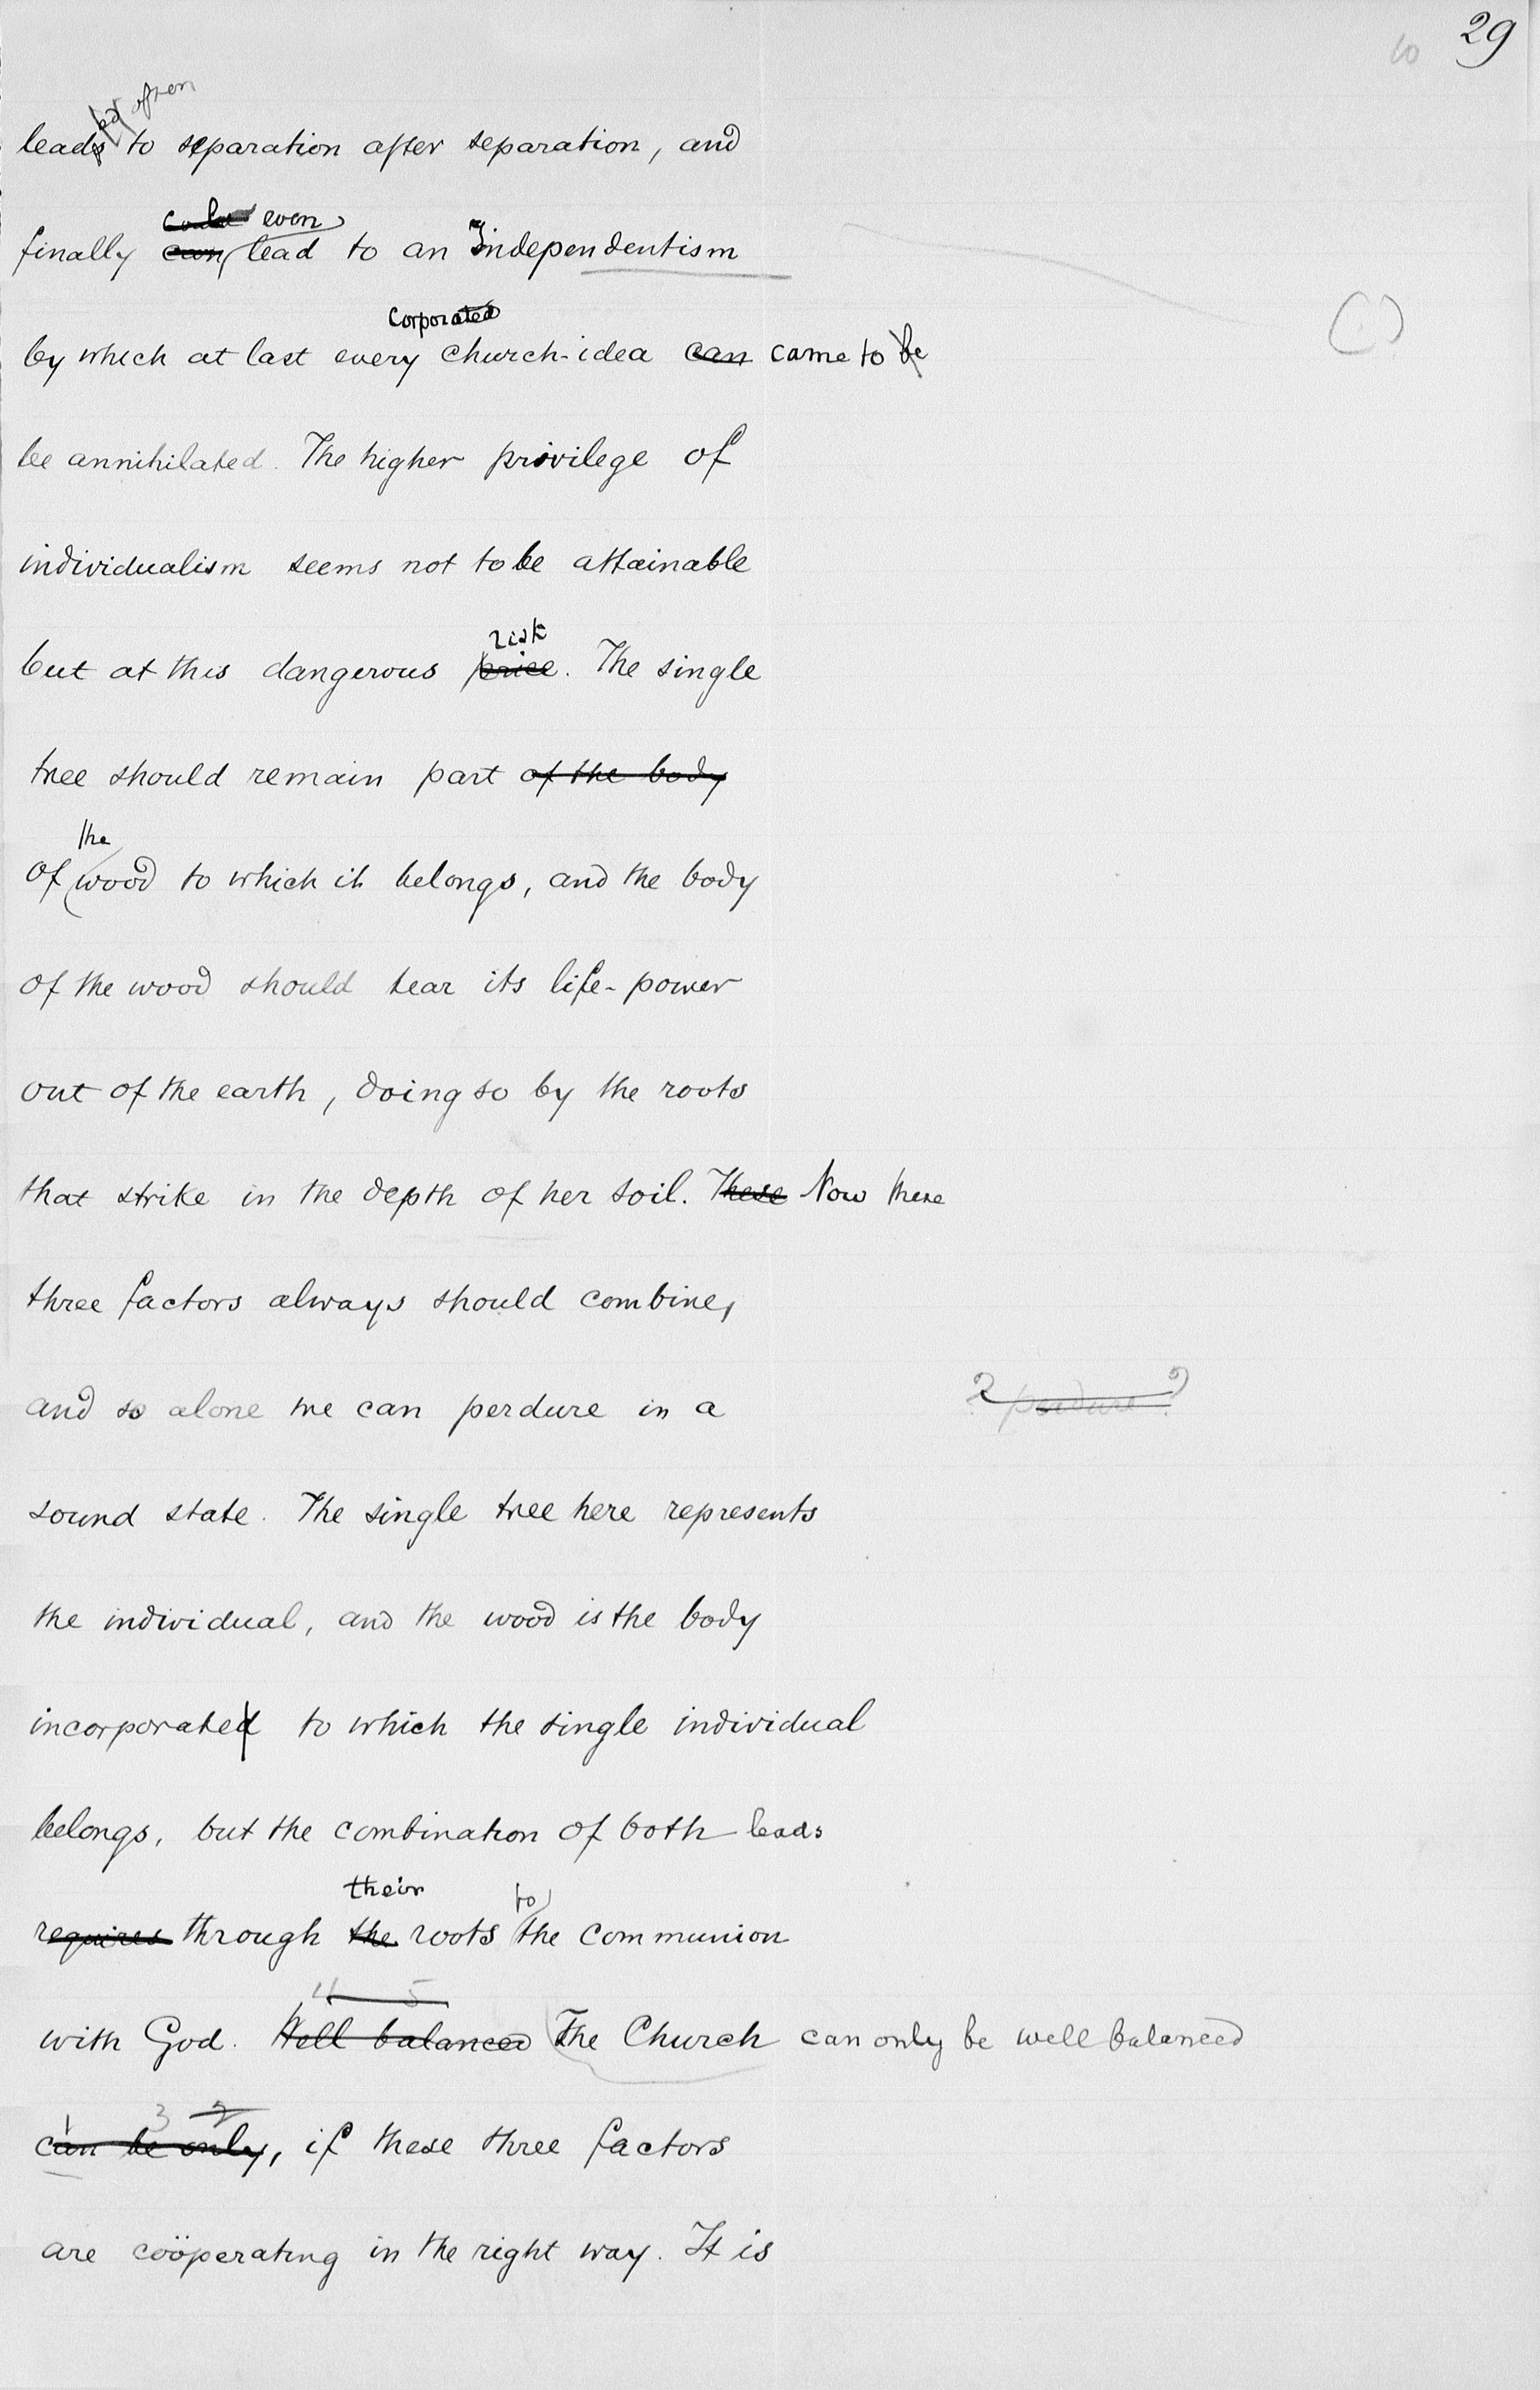 29
10
often
leads to separation after separation, and
could even
finally can lead to an Independentism
Corporated
by which at last every church-idea can came to be
be annihilated. The higher privilege of
individualism seems not to be attainable
risk
but at this dangerous price. The single
tree should remain part of the body
the
of wood to which it belongs, and the body
of the wood should tear its life-power
out of the earth, doing so by the roots
that strike in the depth of her soil. These Now these
three factors always should combine,
and so alone we can perdure in a
? perdure ?
sound state. The single tree here represents
the individual, and the wood is the body
incorporated to which the single individual
belongs, but the combination of both leads
their to
requires through the roots the communion
4 5
with God. Well balanced The Church can only be well balanced
1 3 2
can be only, if these three factors
are coöperating in the right way. It is